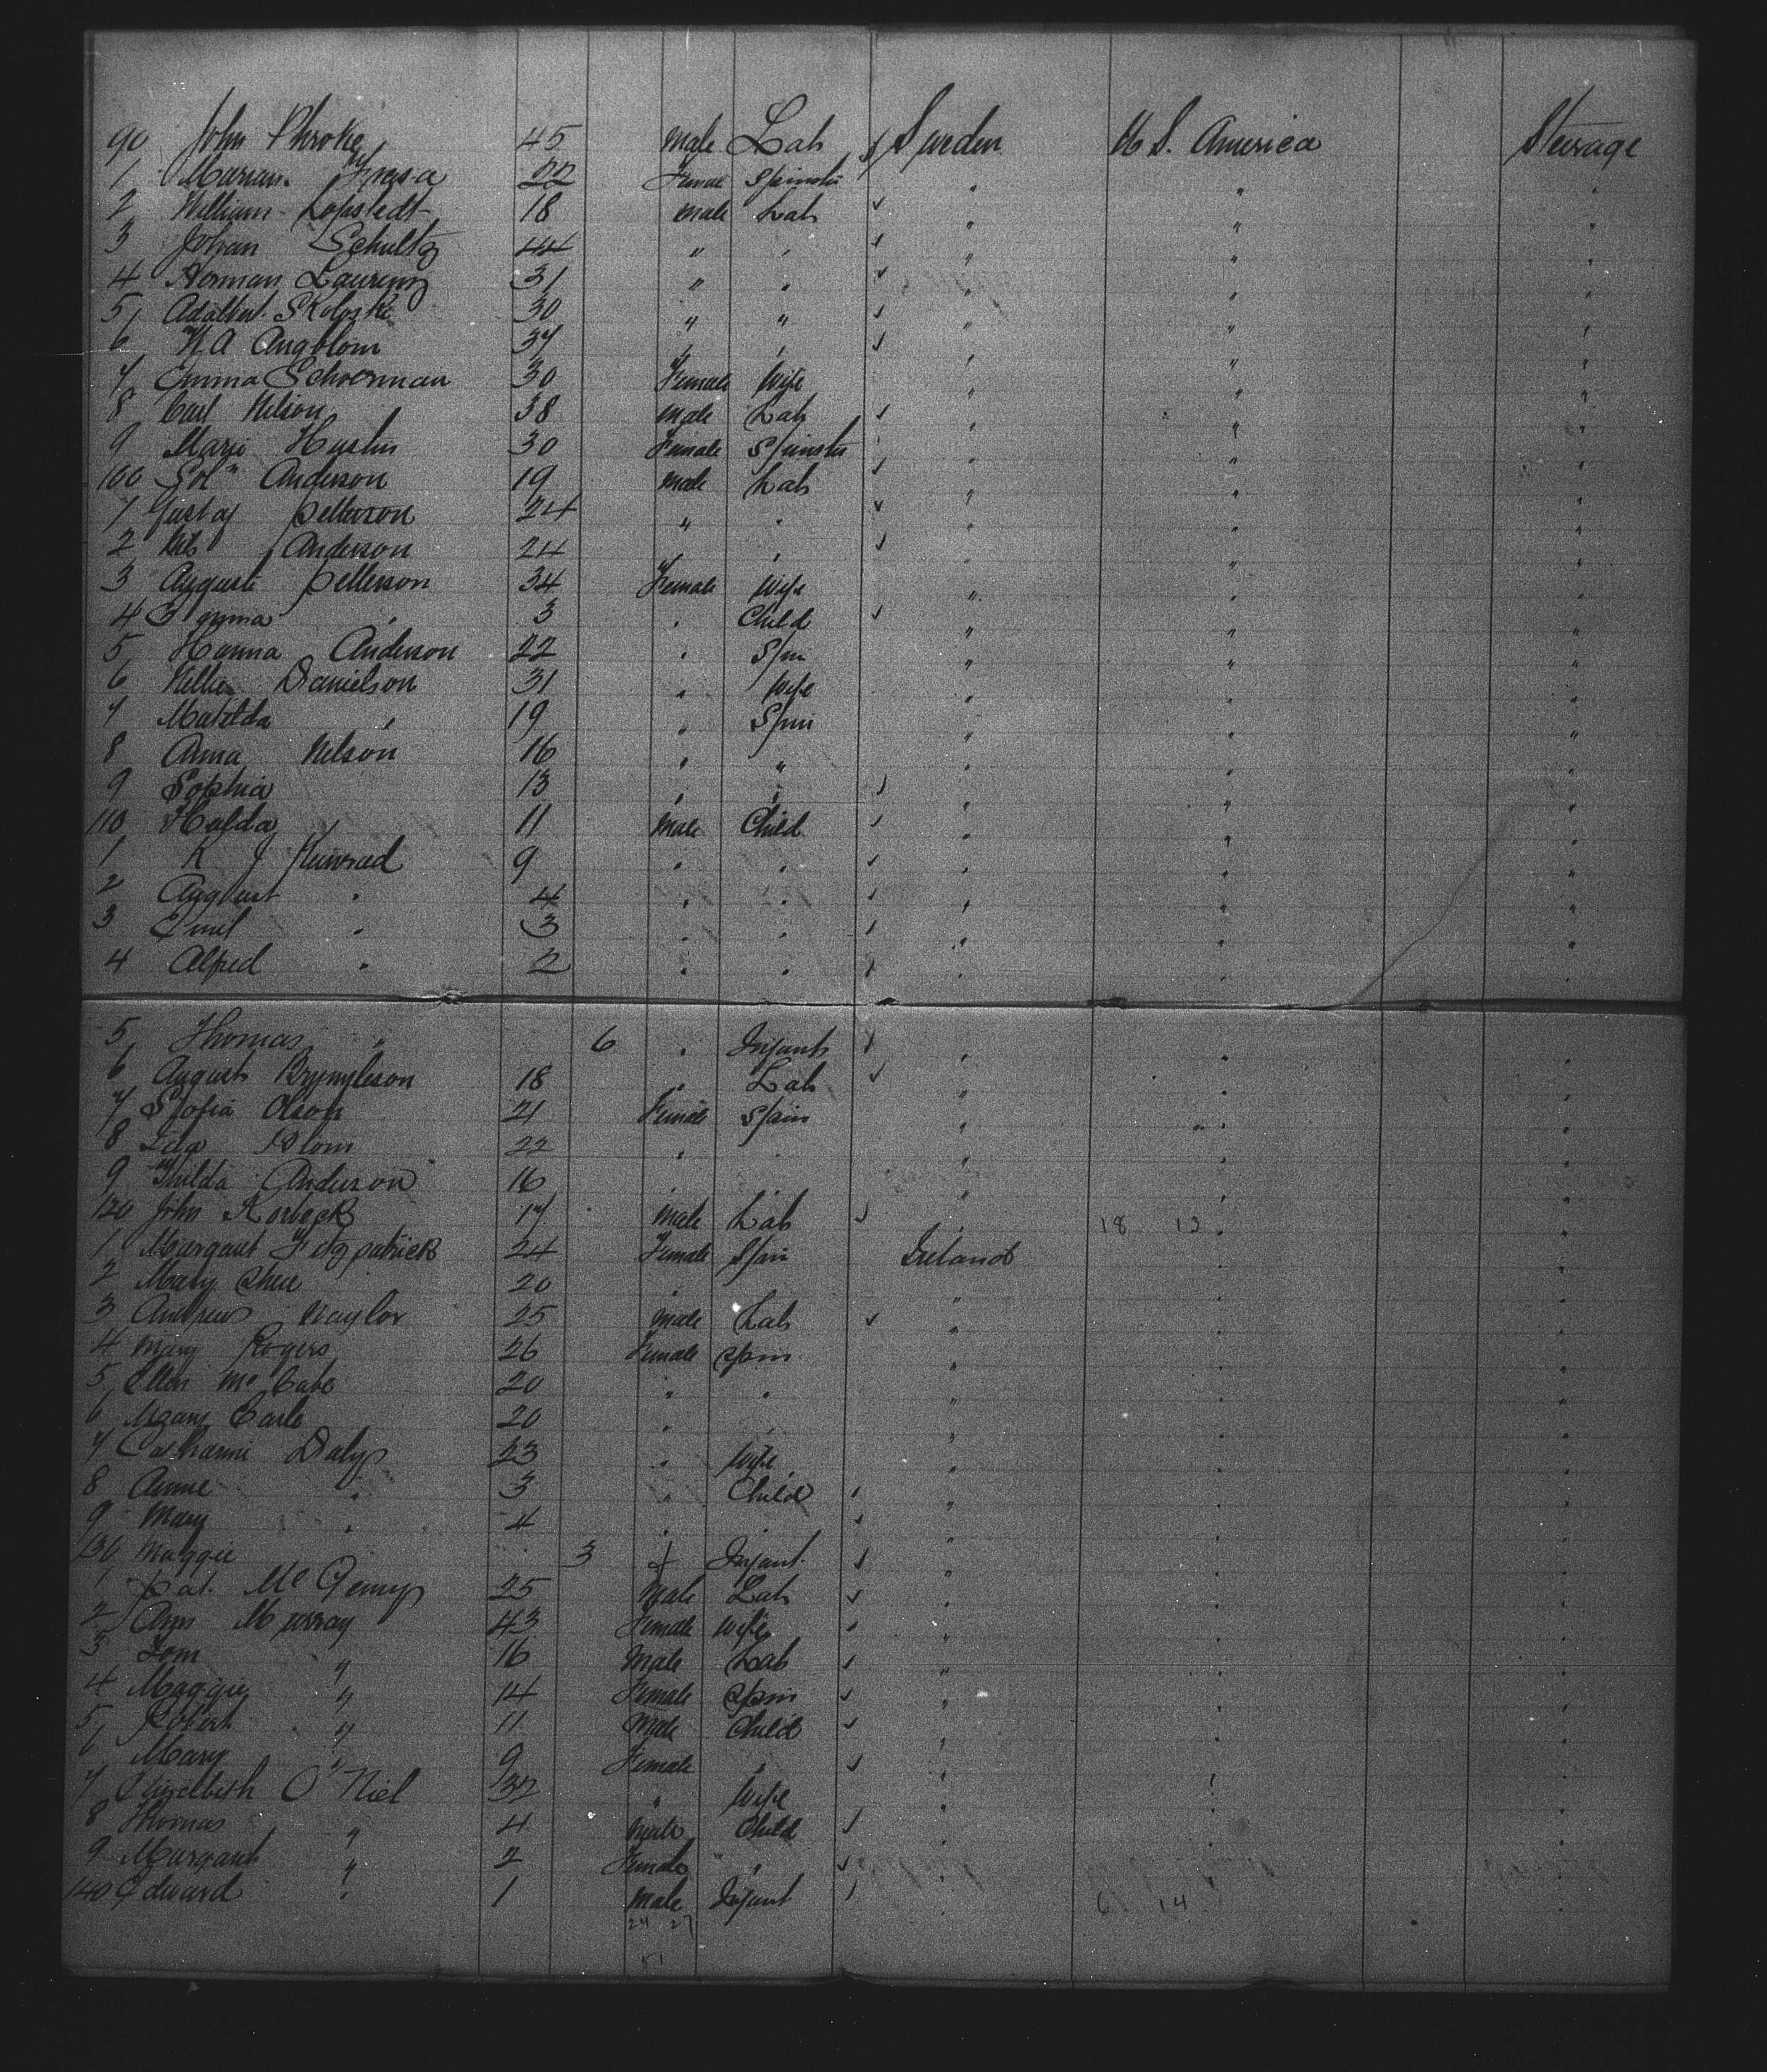 90 John Shroke 45 Male Lab Sweden U S. America Steerage
1 Marian 22 Female Spinster " " "
2 William Lofstedt 18 Male Lab " " "
3 Johan Schultz 44 " " " " "
4 Herman Laurenz 31 " " " " "
5 Adalbert Skoloske 30 " " " " "
6 N A Angblom 37 " " " " "
7 Emma Schoerman 30 Female Wife " " "
8 Carl Nelson 38 Male Lab " " "
9 Marie 30 Female Spinster " " "
100 Soln Anderson 19 Male Lab " " "
1 Gustaf Petterson 24 " " " " "
2 Nils Anderson 24 " " " " "
3 Auguste Petterson 34 Female Wife " " "
4 Emma " 3 " Child " " "
5 Hanna Anderson 22 " Spin " " "
6 Nellie Danielson 31 " Wife " " "
7 Matilda " 19 " Spin " " "
8 Anna Nelson 16 " " " " "
9 Sophia 13 " " " " "
110 Halda 11 Male Child " " "
1 K J 9 " " " " "
2 August " 4 " " " " "
3 Emil " 3 " " " " "
4 Alfred " 2 " " " " "
5 Thomas " 6 " Infant " " "
6 August Brynyleson 18 " Lab " " "
7 Sofia Olson 21 Female Spin " " "
8 Ida Blom 22 " " " " "
9 Thilda Anderson 16 " " " " "
120 John Norbeck 17 Male Lab " 18 13 " "
1 Margaret Fitzpatrick 24 Female Spin Ireland " "
2 Mary Shea 20 " " " " "
3 Andrew Naylor 25 Male Lab " " "
4 Mary Rogers 26 Female Spin " " "
5 Ellen McCabe 20 " " " " "
6 Mary Carle 20 " " " " "
7 Catharine Daly 23 " Wife " " "
8 Anne " 3 " Child " " "
9 Mary " 4 " " " " "
130 Maggie " 3 " Infant " " "
1 Pat. McGenny 25 Male Lab " " "
2 Ann Murray 43 Female Wife " " "
3 Tom " 16 Male Lab " " "
4 Maggie " 14 Female Spin " " "
5 Robert " 11 Male Child " " "
6 Mary " 9 Female " " " "
7 Elizelbith O'Niel 32 " Wife " " "
8 Thomas " 4 Male Child " " "
9 Margaret " 2 Female " " " "
140 Edward " 1 Male Infant " 6 14 "
24 27
51